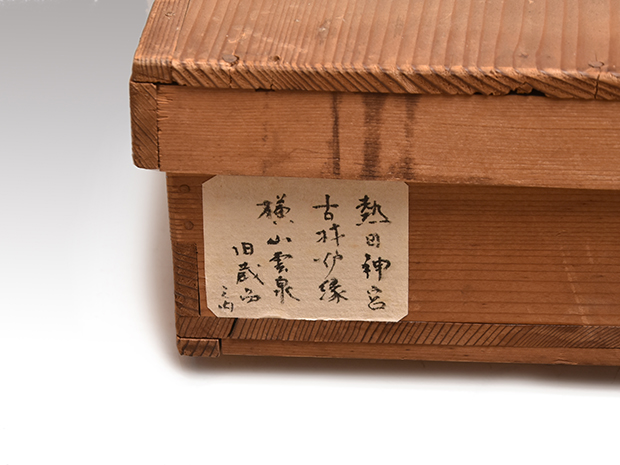 熱田神宮
古材炉縁
横山雲泉
旧蔵品